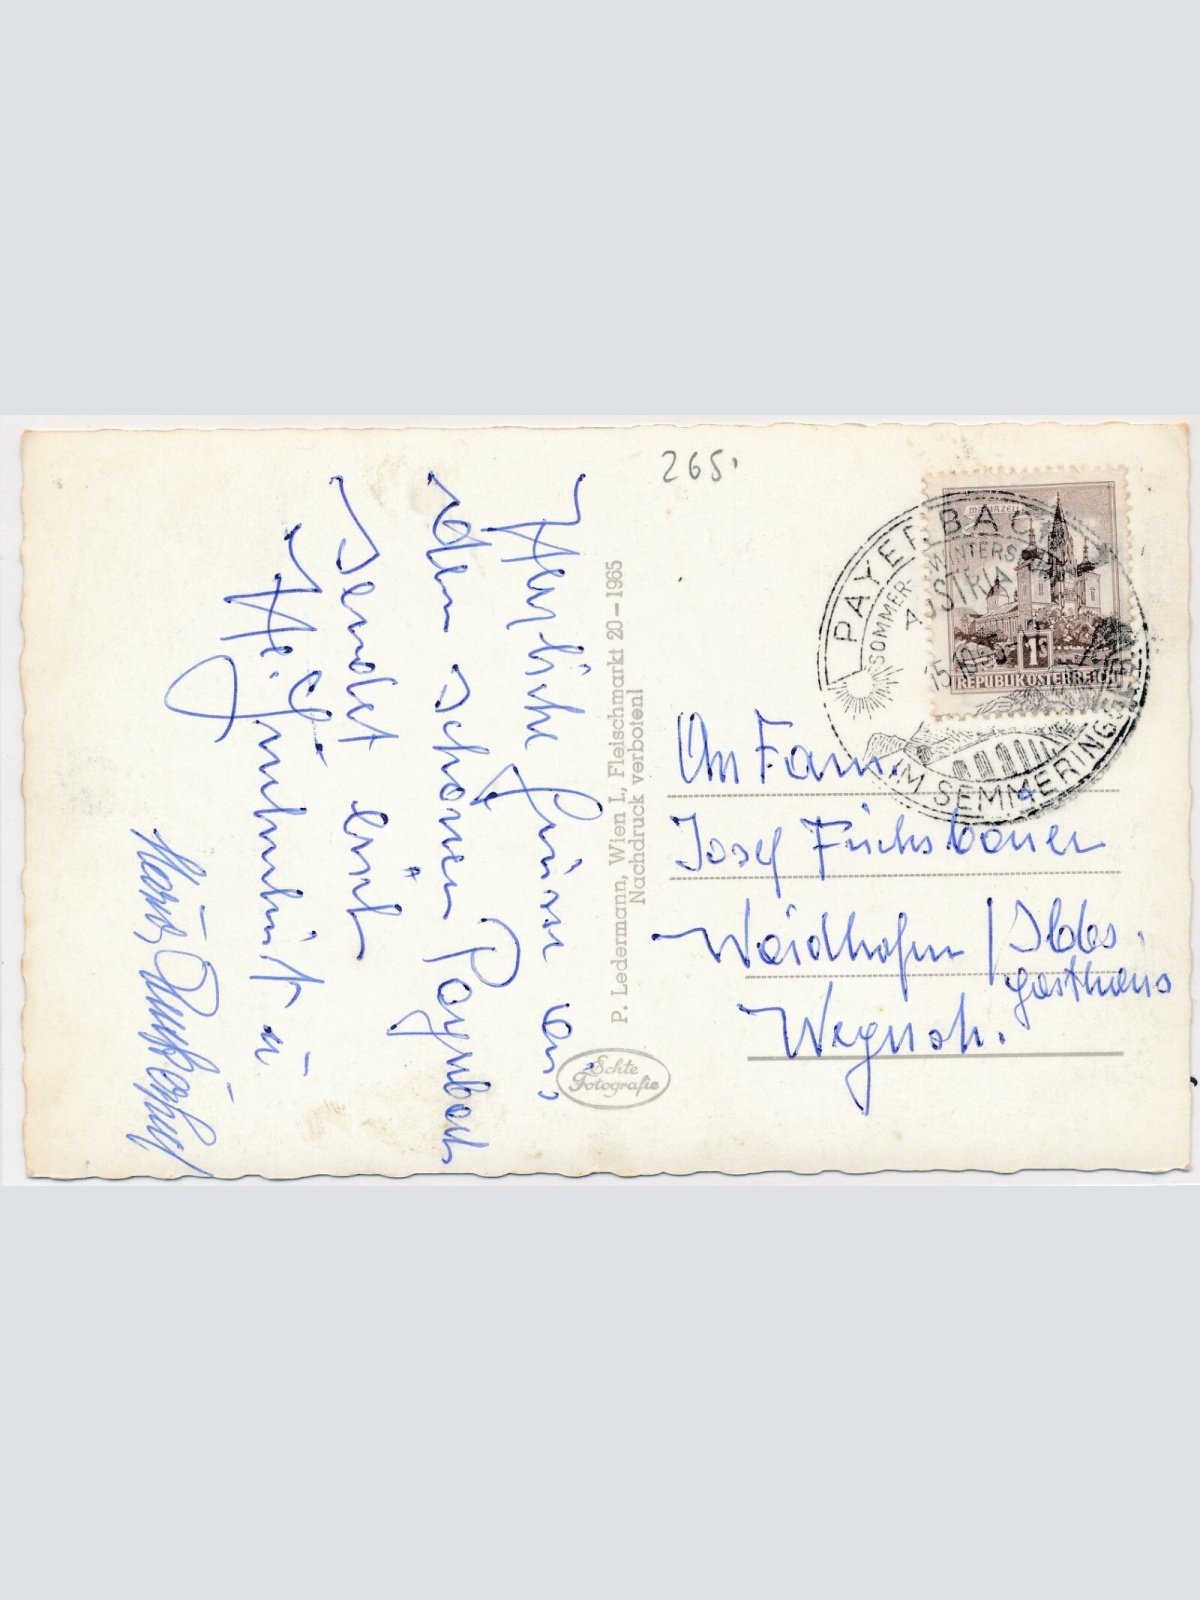 265.
Herzliche Grüsse aus
dem schönen Payerbach
sendet euch
P. Ledermann, Wien I., Fleischmarkt 20 – 1965
Nachdruck verboten!
Echte
Fotografie
MARIAZELL
1S
REPUBLIK ÖSTERREICH
PAYERBACH
SOMMER- WINTERS
AUSTRIA
15.10.65
IM SEMMERINGGEBIET
An Fam.
Josef Fuchsbauer
Waidhofen / Ybbs.
Gasthaus